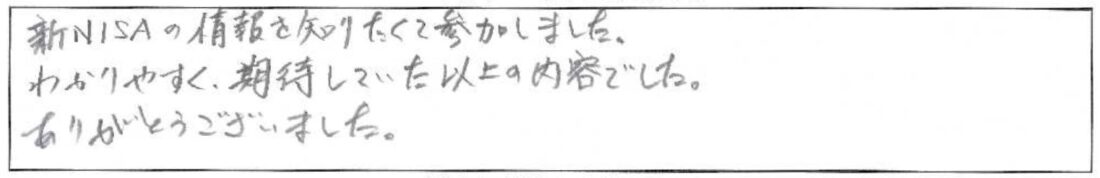 新NISAの情報を知りたくて参加しました。
わかりやすく、期待していた以上の内容でした。
ありがとうございました。